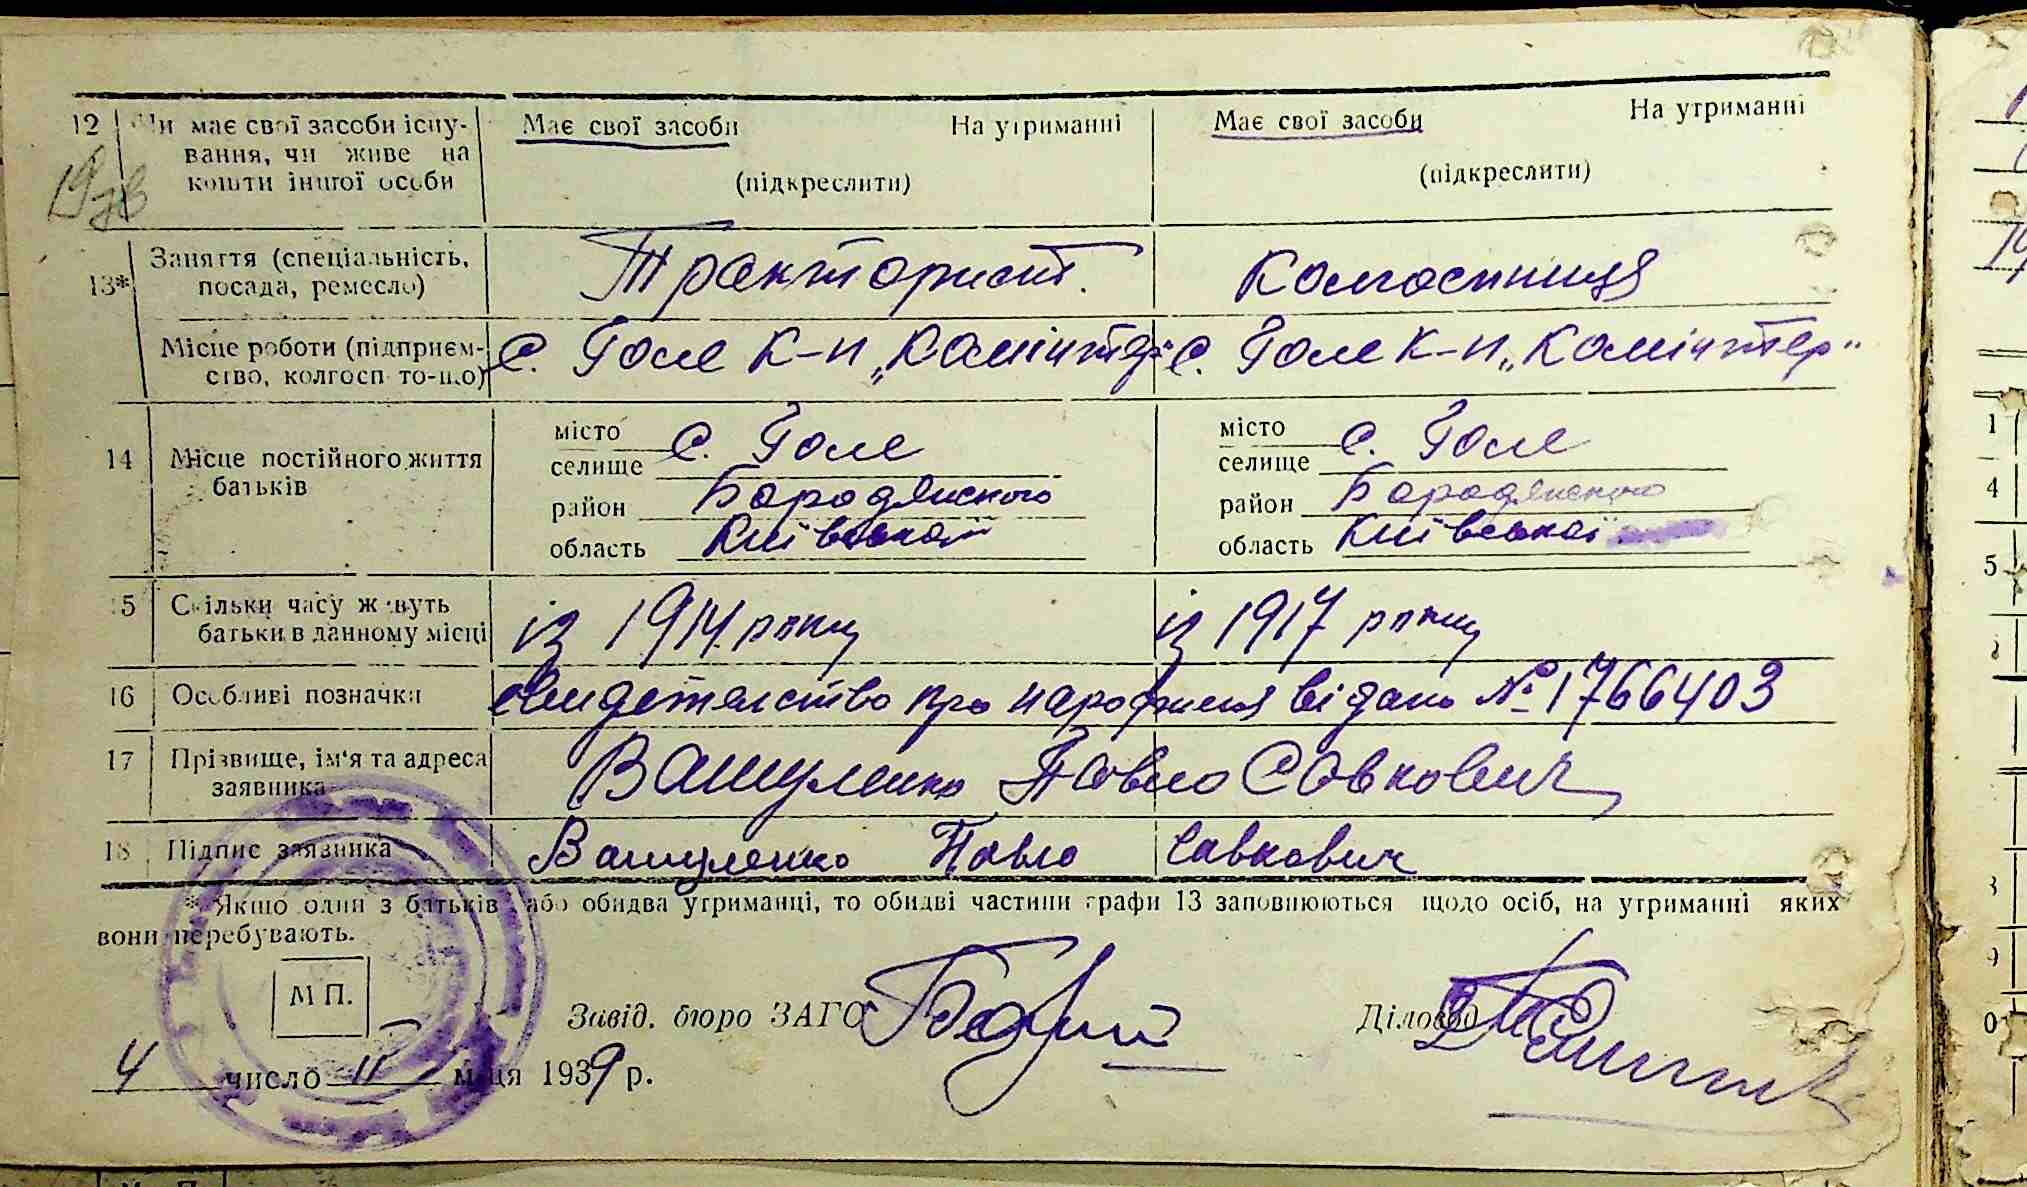 12 Чи має свої засоби існу- Має свої засоби На утриманні Має свої засоби На утриманні
вання, чи живе на
кошти іншої особи (підкреслити) (підкреслити)
13* Заняття (спеціальність, Тракторист. Колгоспниця
посада, ремесло)
Місце роботи (підприєм- С. Голе к-п „Комінтер" С. Голе к-п „Комінтер"
ство, колгосп то-що)
місто С. Голе місто С. Голе
14 Місце постійного життя селище селище
батьків район Бородянского район Бородянского
область Київської область Київської
15 Скільки часу живуть із 1914 року із 1917 року
батьки в данному місці
16 Особливі позначки свидетелство про народженя відано № 1766403
17 Прізвище, ім'я та адреса Вашуленко Павло Савкович
заявника
18 Підпис заявника Вашуленко Павло Савкович
* Якщо один з батьків або обидва утриманці, то обидві частини графи 13 заповнюються щодо осіб, на утриманні яких
вони перебувають.
М П.
Завід. бюро ЗАГС Діловод
4 число II м-ця 1939 р.
1
4
5